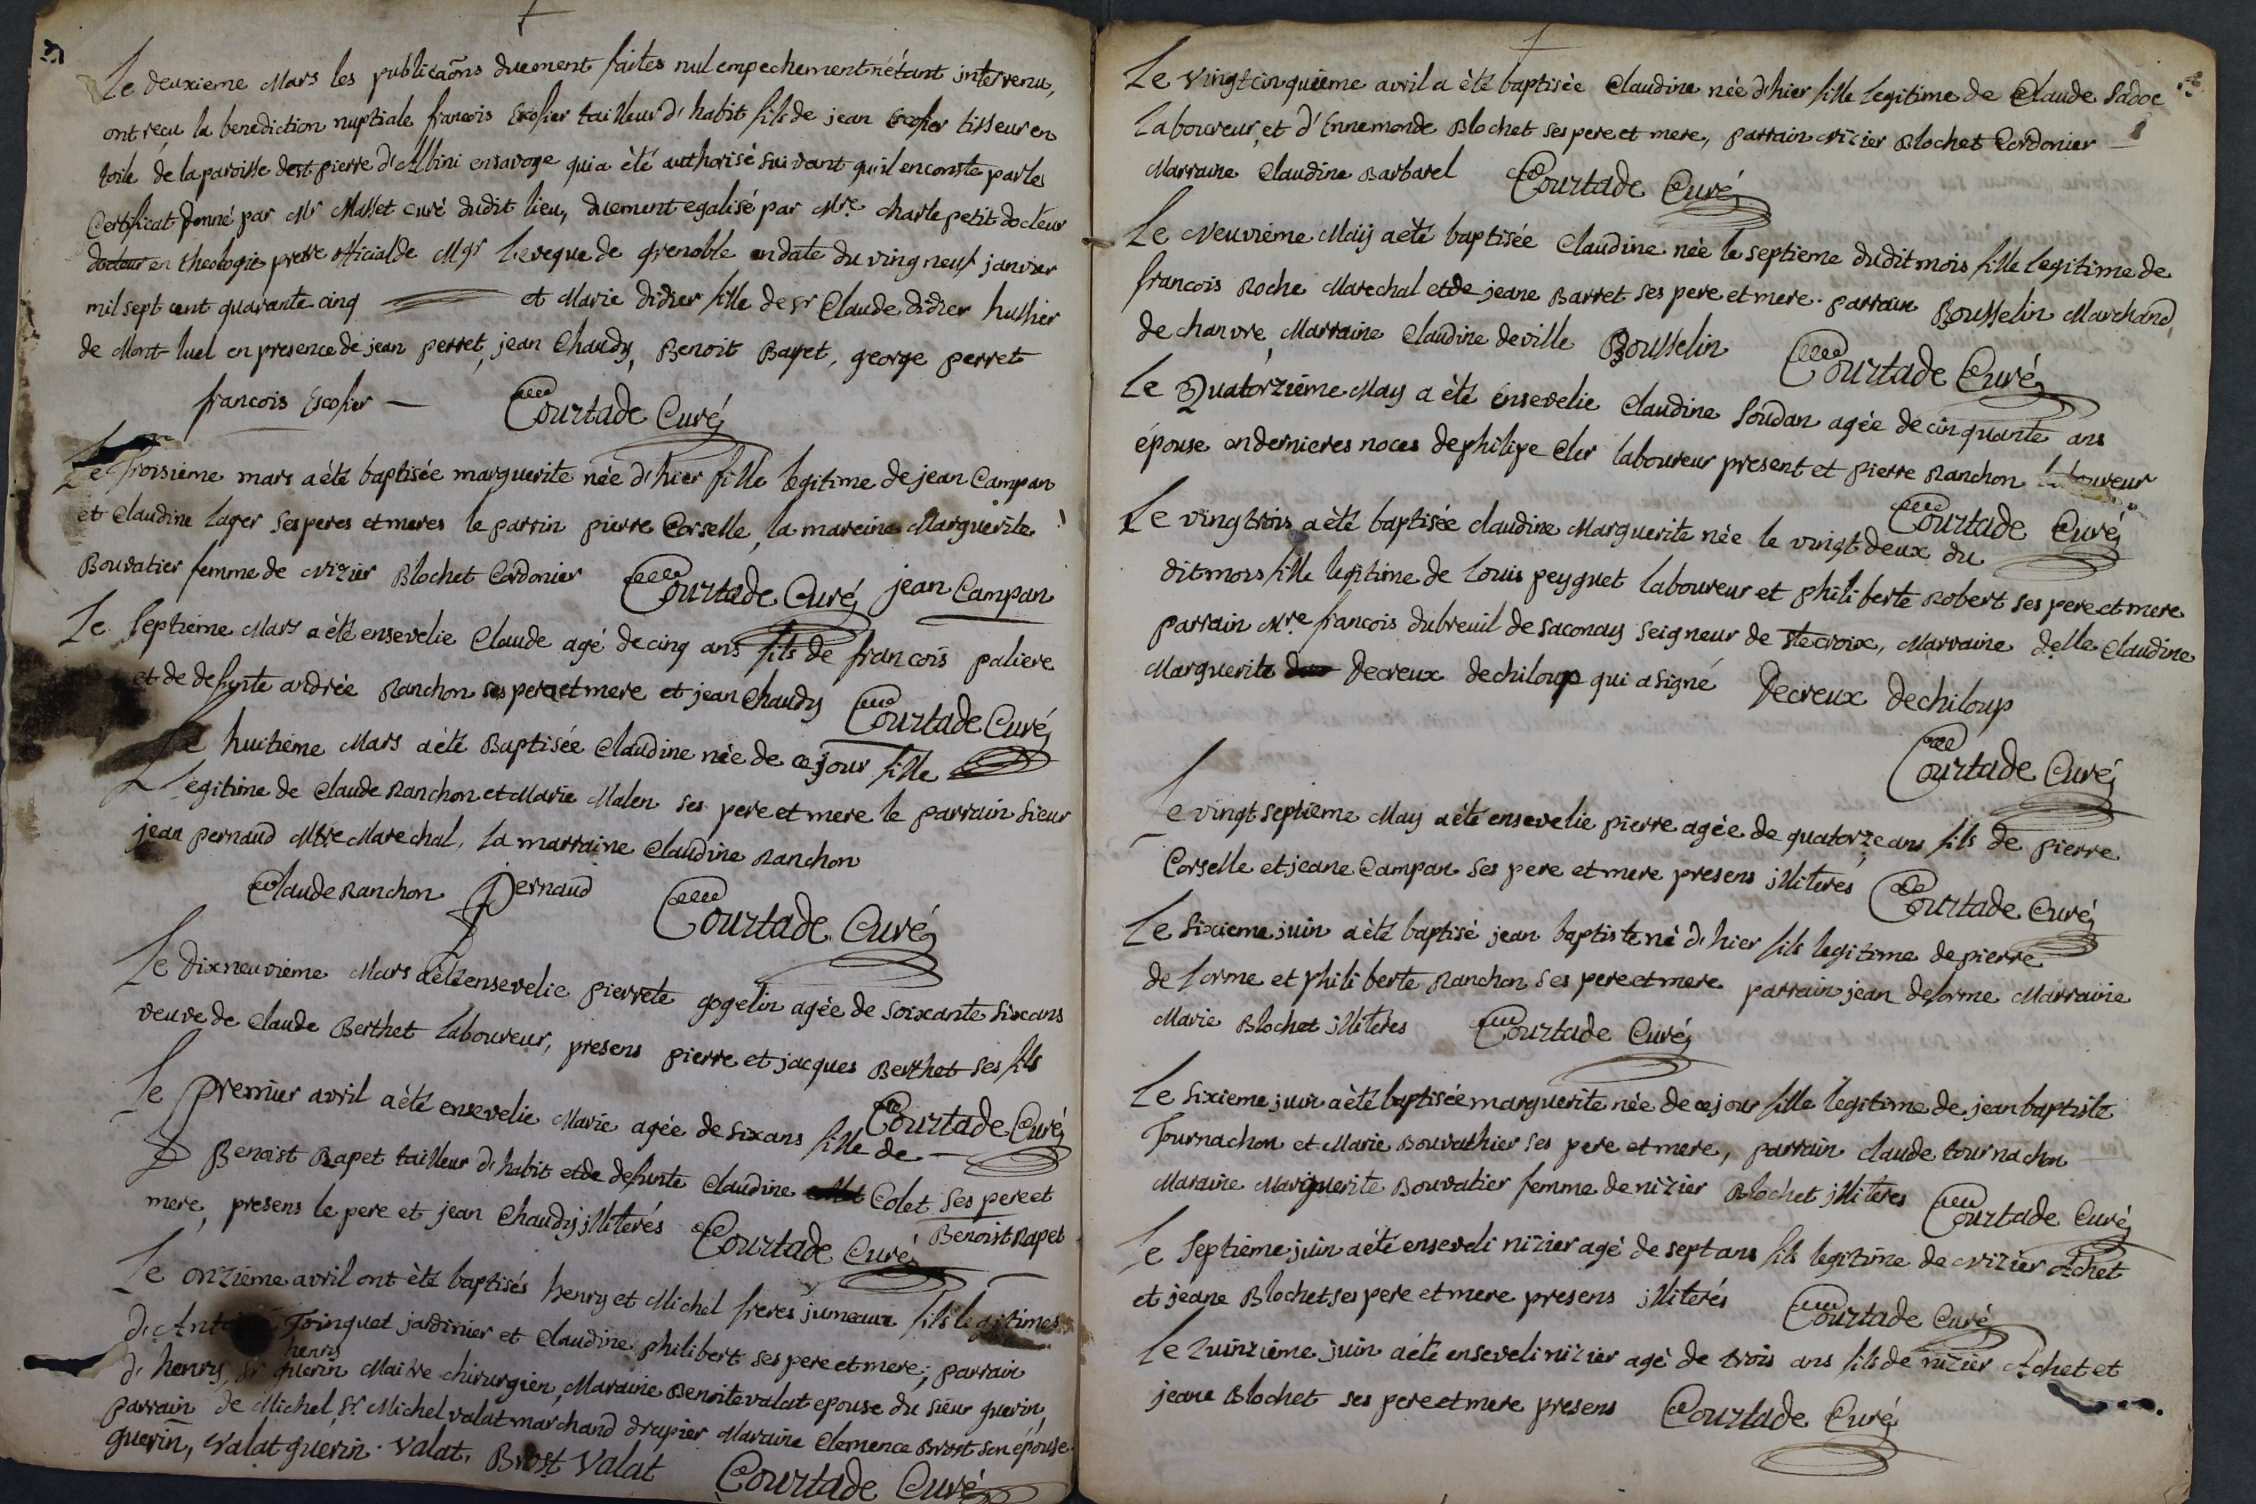 Le deuxieme Mars les publicaõns duement faites nul empechement n'étant intervenu,
ont reçu la benediction nuptiale francois Escofier tailleur d'habit fils de jean Escofier tisseur en
toile de la paroisse de st pierre d'Albini en savoye qui a été authorisé suivant qu'il enconste par les
Certificat donné par Mr Masset curé dudit lieu, duement egalisé par Mre charle petit docteur
docteur en theologie pretre official de Mgr Leveque de grenoble en date du vingneuf janvier
mil sept cent quarante cinq et Marie didier fille de Sr Claude didier hussier
de Mont-luel en presence de jean perret, jean Chaudy, Benoit Bayet, george perret
francois Escofier Courtade Curé
Le Troisieme mars a été baptisée marguerite née d'hier fille legitime de jean Campan
et Claudine Lager ses peres et meres le parrin pierre Corselle, la mareine Marguerite
Bouvatier femme de Nizier Blochet Cordonier Courtade Curé jean Campan
Le Septieme Mars a été ensevelie Claude agé de cinq ans fils de francois paliere
et de defunte andrée Ranchon ses pere et mere et jean Chaudy Courtade Curé
Le huitieme Mars a été Baptisée Claudine née de ce jour fille
Legitime de Claude Ranchon et Marie Malen ses pere et mere le parrain Sieur
jean pernaud Mtre Marechal, La marraine Claudine Ranchon
Claude Ranchon Pernaud Courtade Curé
Le Dixneuvieme Mars a été ensevelie pierrete gogelin agée de soixante six ans
veuve de Claude Berthet Laboureur, presens pierre et jacques Berthet ses fils
Courtade Curé
Le premier avril a été ensevelie Marie agée de six ans fille de
Benoist Rapet tailleur d'habit et de defunte Claudine Colet ses pere et
mere, presens le pere et jean Chaudy illiterés Courtade Curé Benoist Rapet
Le onzieme avril ont été baptisés henry et Michel freres jumeaux fils legitimes
d'Antoine Troinquet jardinier et Claudine philibert ses pere et mere; parrain
henry
d'henry, Sr guerin Maitre chirurgien, Maraine Benoite valat epouse du sieur guerin,
parrain de Michel, Sr Michel valat marchand drapier Maraine Clemence Brost son épouse.
guerin, Valat guerin. Valat. Brost Valat Courtade Curé
Le vingtcinquieme avril a été baptisée Claudine née d'hier fille legitime de Claude Sadoc
Laboureur, et d'Ennemonde Blochet ses pere et mere, parrain Nizier Blochet Cordonier
Marraine Claudine Barbarel Courtade Curé
Le Neuviéme Maÿ a été baptisée Claudine née le septieme dudit mois fille legitime de
francois Roche Marechal et de jeane Barret ses pere et mere. parrain Bousselin Marchand
de chanvre, Marraine Claudine deville Bousselin Courtade Curé
Le Quatorziéme May a été ensevelie Claudine Soudan agée de cinquante ans
épouse en dernieres noces de philipe Cler laboureur present et pierre Ranchon laboureur
Courtade Curé
Le vingtrois a été baptisée claudine Marguerite née le vingt deux du
dit mois fille legitime de Louis peyguet laboureur et philiberte Robert ses pere et mere
parrain Mre francois dubreuil de saconay seigneur de ste croix, Marraine delle Claudine
Marguerite Decreux dechiloup qui a signé Decreux dechiloup
Courtade Curé
Le vingt septieme May a été ensevelie pierre agée de quatorze ans fils de pierre
Corselle et jeane Campan ses pere et mere presens illiterés Courtade Curé
Le Sixieme juin a été baptisé jean baptiste né d'hier fils legitime de pierre
de lorme et philiberte Ranchon ses pere et mere parrain jean delorme Marraine
Marie Blochet illiteres Courtade Curé
Le Sixieme juin a été baptisée marguerite née de ce jour fille legitime de jean baptiste
Tournachon et Marie Bouvathier ses pere et mere, parrain claude tournachon
Maraine Marguerite Bouvatier femme de nizier Blochet illiteres Courtade Curé
Le Septiéme juin a été enseveli nizier agé de sept ans fils legitime de Nizier Achet
et jeane Blochet ses pere et mere presens illiterés Courtade Curé
Le Quinzieme juin a été enseveli nizier agé de trois ans fils de nizier Achet et
jeane Blochet ses pere et mere presens Courtade Curé